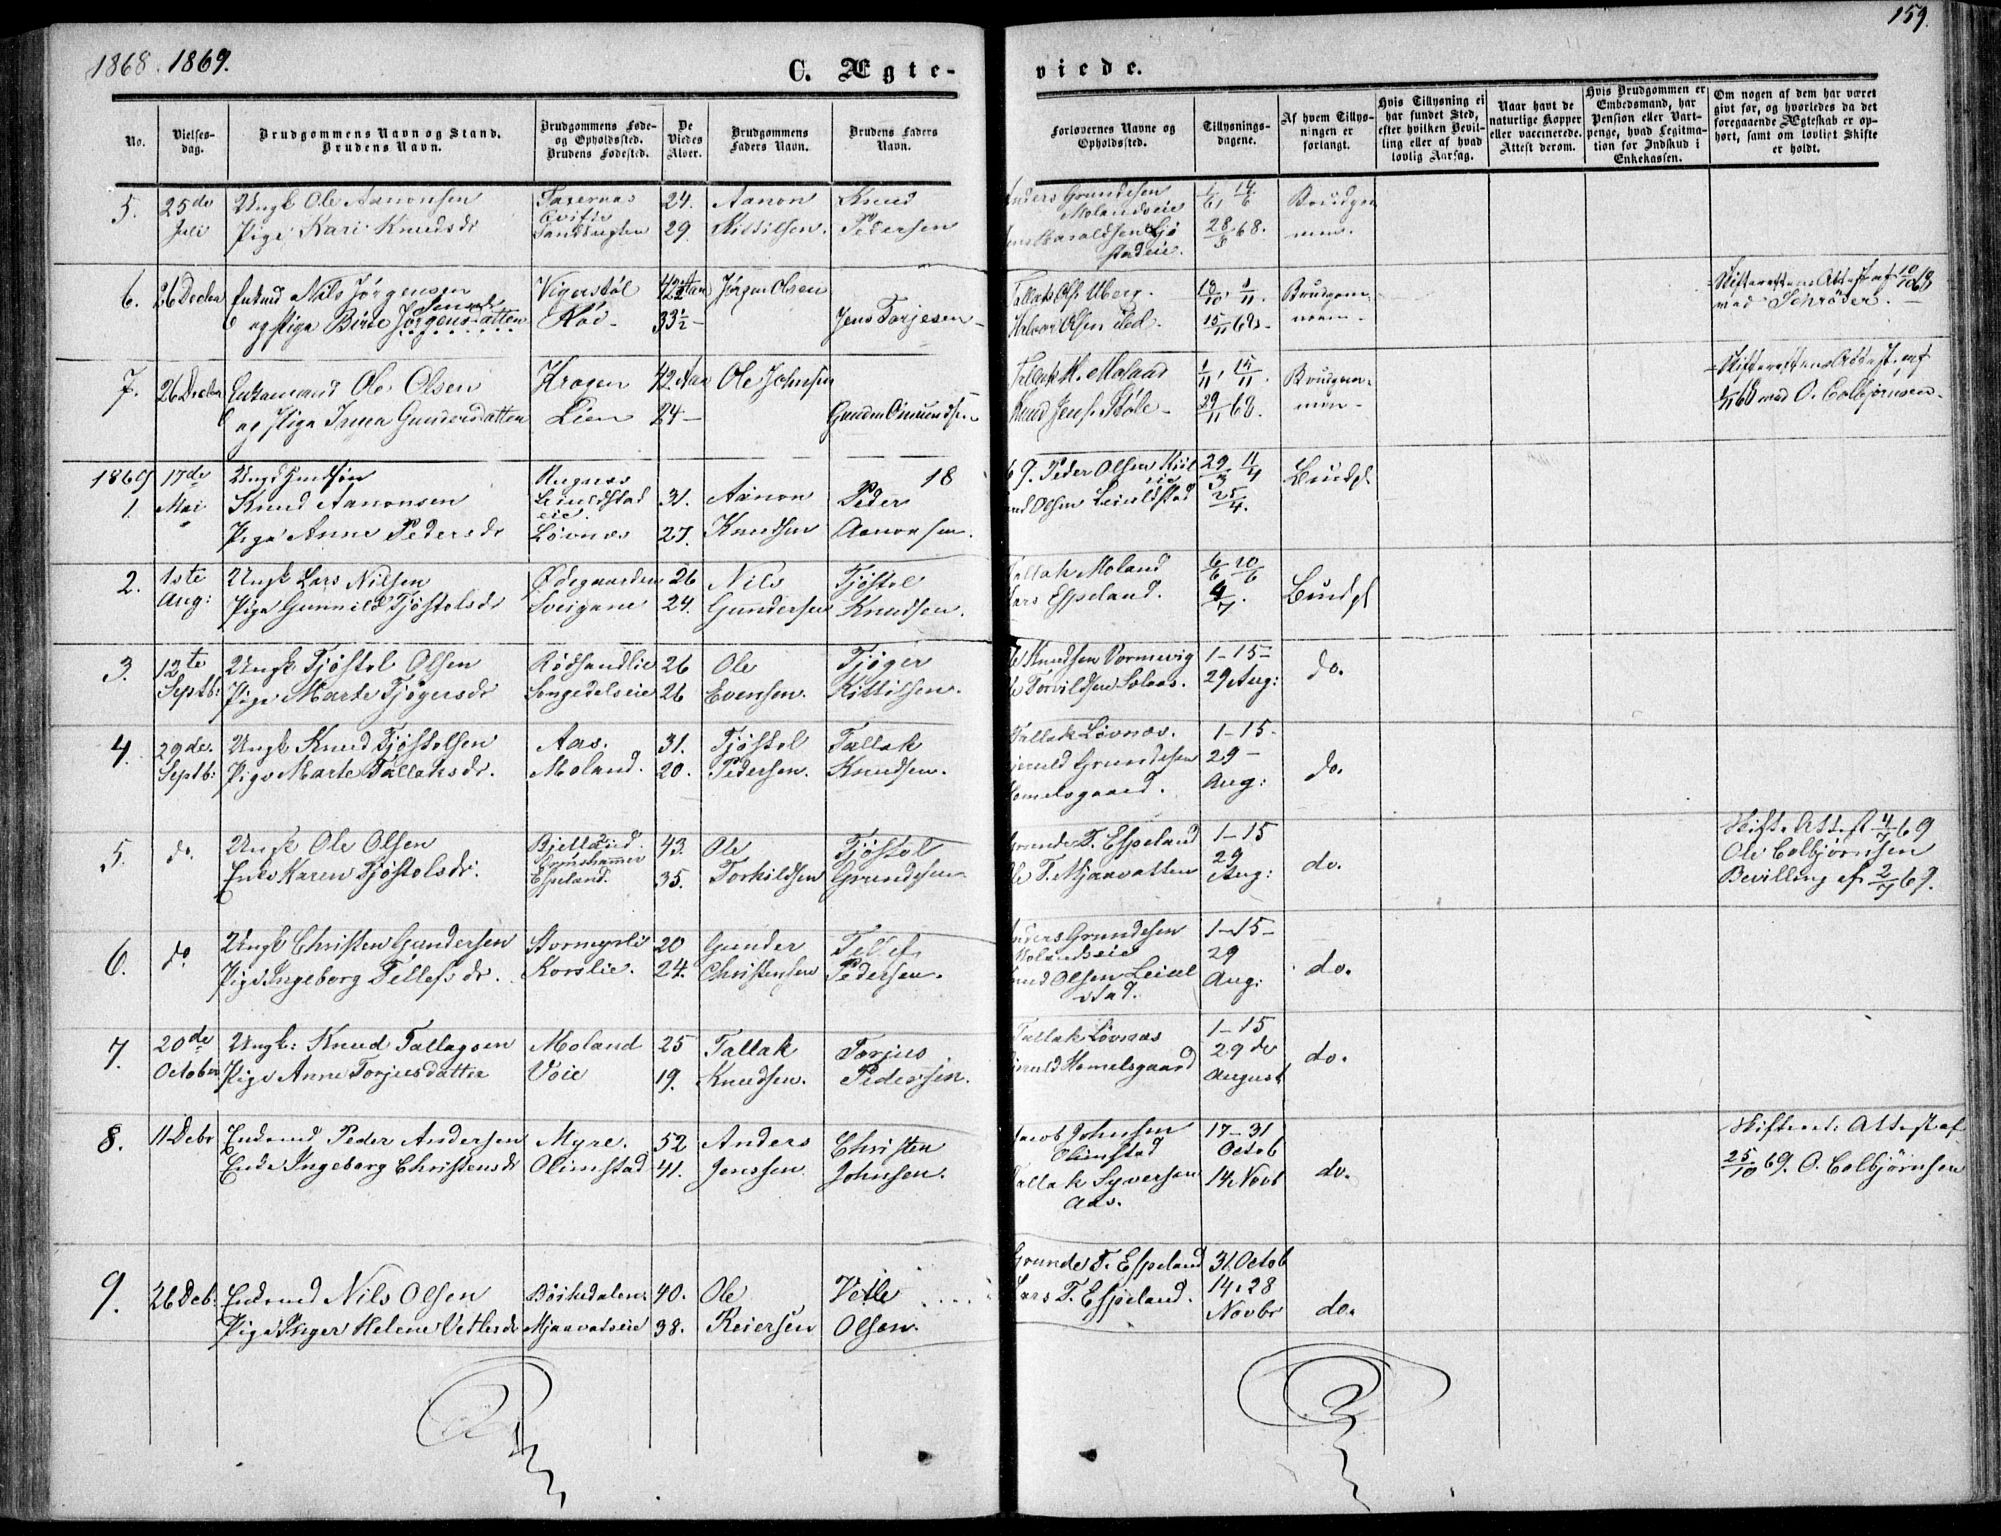 1868. 1869.
159.
C. Ægte-
viede.
No.
Vielses-
dag.
Brudgommens Navn og Stand.
Brudens Navn.
Brudgommens Føde-
og Opholdssted.
Brudens Fødested.
De
Viedes
Alder.
Brudgommens
Faders Navn.
Brudens Faders
Navn.
Forlovernes Navne og
Opholdssted.
Tillysnings-
dagene.
Af hvem Tillys-
ningen er
forlangt.
Hvis Tillysning ei
har fundet Sted,
efter hvilken Bevil-
ling eller af hvad
lovlig Aarsag.
Naar havt de
naturlige Kopper
eller vaccinerede.
Attest derom.
Hvis Brudgommen er
Embedsmand, har
Pension eller Vart-
penge, hvad Legitima-
tion for Indskud i
Enkekassen.
Om nogen af dem har været
givt før, og hvorledes da det
foregaaende Ægteskab er op-
hørt, samt om lovligt Skifte
er holdt.
5. 25de Ungk Ole Aanonsen 24. Aanon Knud
Juli Pige Kari Knudsdr 29 Kittilsen. Pedersen
Anders Grundesen 1/6, 14/6 Brudgom
Molandseie
28/ 68. men.
6. 26 Decbr Enkmd Nils Jørgensen Vigerstøl 42½ Aar Jørgen Olsen
og Pige Birte Jørgensdatter 33½ - Jens Torjesen -
Tallak Ols. Uberg. 18/10, 1/11. Brudgom-
Halvor Olsen ibd. 15/11 68. mem.
Skifterettens Attest af 10/10 68
med Schrøder. -
7. 26 Decbr Enkemand Ole Olsen Kragen 42 Aar Ole Johnsen
og Pige Inger Gundersdatter Lien 24 -
Tallak K. Moland 1/11, 15/11. Brudgom-
Knud Jens. Støle - 29/11 68. men -
Skifterettens Attest af
/11 68 med O. Colbjørnsen.
1869 17de Ungd Huusfm 18
1. Mai Knud Aanonsen 31. Aanon Peder
Pige Anne Pedersdr Løvnes 27. Knudsen Aanonsen.
69. Peder Olsen 29/3 11/4 Brudg
Olsen Leiuldstad 25/4.
2. 1ste Ungk Lars Nilsen Ødegaarden 26 Nils Tjøstol
Aug: Pige Gunnild Tjøstolsdr Sveigane 24. Gundersen Knudsen.
Tallak Moland 6/6 20/6
Lars Espeland. 4/7. Brudg
3. 12te Ungk Tjøstol Olsen Rødsandlie 26 Ole Tjøger
Septb: Pige Marte Tjøgersdr Songedelseie 26 Evensen. Kittilsen.
Knudsen Vormevig 1-15-
29 Aug: do.
4. 29de. Ungk Knud Tjøstolsen Aas. 31. Tjøstol Tallak
Septb: Pige Marte Tallaksdr. Moland. 20. Pedersen. Knudsen.
Tallak Løvnes. 1-15-
Grundesen 29 -
Homelsgaard. Aug: do.
5. do. Ungk Ole Olsen 43. Ole Tjøstol
Enke Karen Tjøstolsdr. Espeland. 35. Torkildsen Grundesen
Grunde T. Espeland 1-15
Ole T. Mjaavatten 29 Aug: do.
Skifte Attest 4/7 69
Ole Colbjørnsen
Bevilling af 2/7 69.
6. do Ungk Christen Gundersen Stormyrlie 20 Gunder Tellef
Pige Ingeborg Tellefsdr. Korslie. 24. Christensen Pedersen.
Anders Grundesen 1-15-
Molandseie 29
Knud Olsen Leiul Aug: do.
stad.
7. 20de Ungk: Knud Tallagsen Moland 25 Tallak Torjus
October Pige Anne Torjusdatter Voie 19. Knudsen. Pedersen.
Tallak Løvnes 1-15
Homelsgaard 29de do.
August
8. 11 Debr Enkemd Peder Andersen Myre. 52 Anders Christen
Enke Ingeborg Christensdr Olimstad 41. Jenssen Johnsen.
Jacob Johnsen 17-31
Olimstad Octob
Tallak Syversen 14 Novb do.
Aas.
Skifteret: Attest af
25/10 69. O. Colbjørnsen
9. 26 Deb: Enkemd Nils Olsen Bøikedalen 40. Ole Vetle
Pige Inger Helene Vetlesdr Mjaavatseie 38. Reiersen Olsen.
Grunde T. Espeland 31 Octob
Lars T. Espeland. 14, 28
Novbr do.